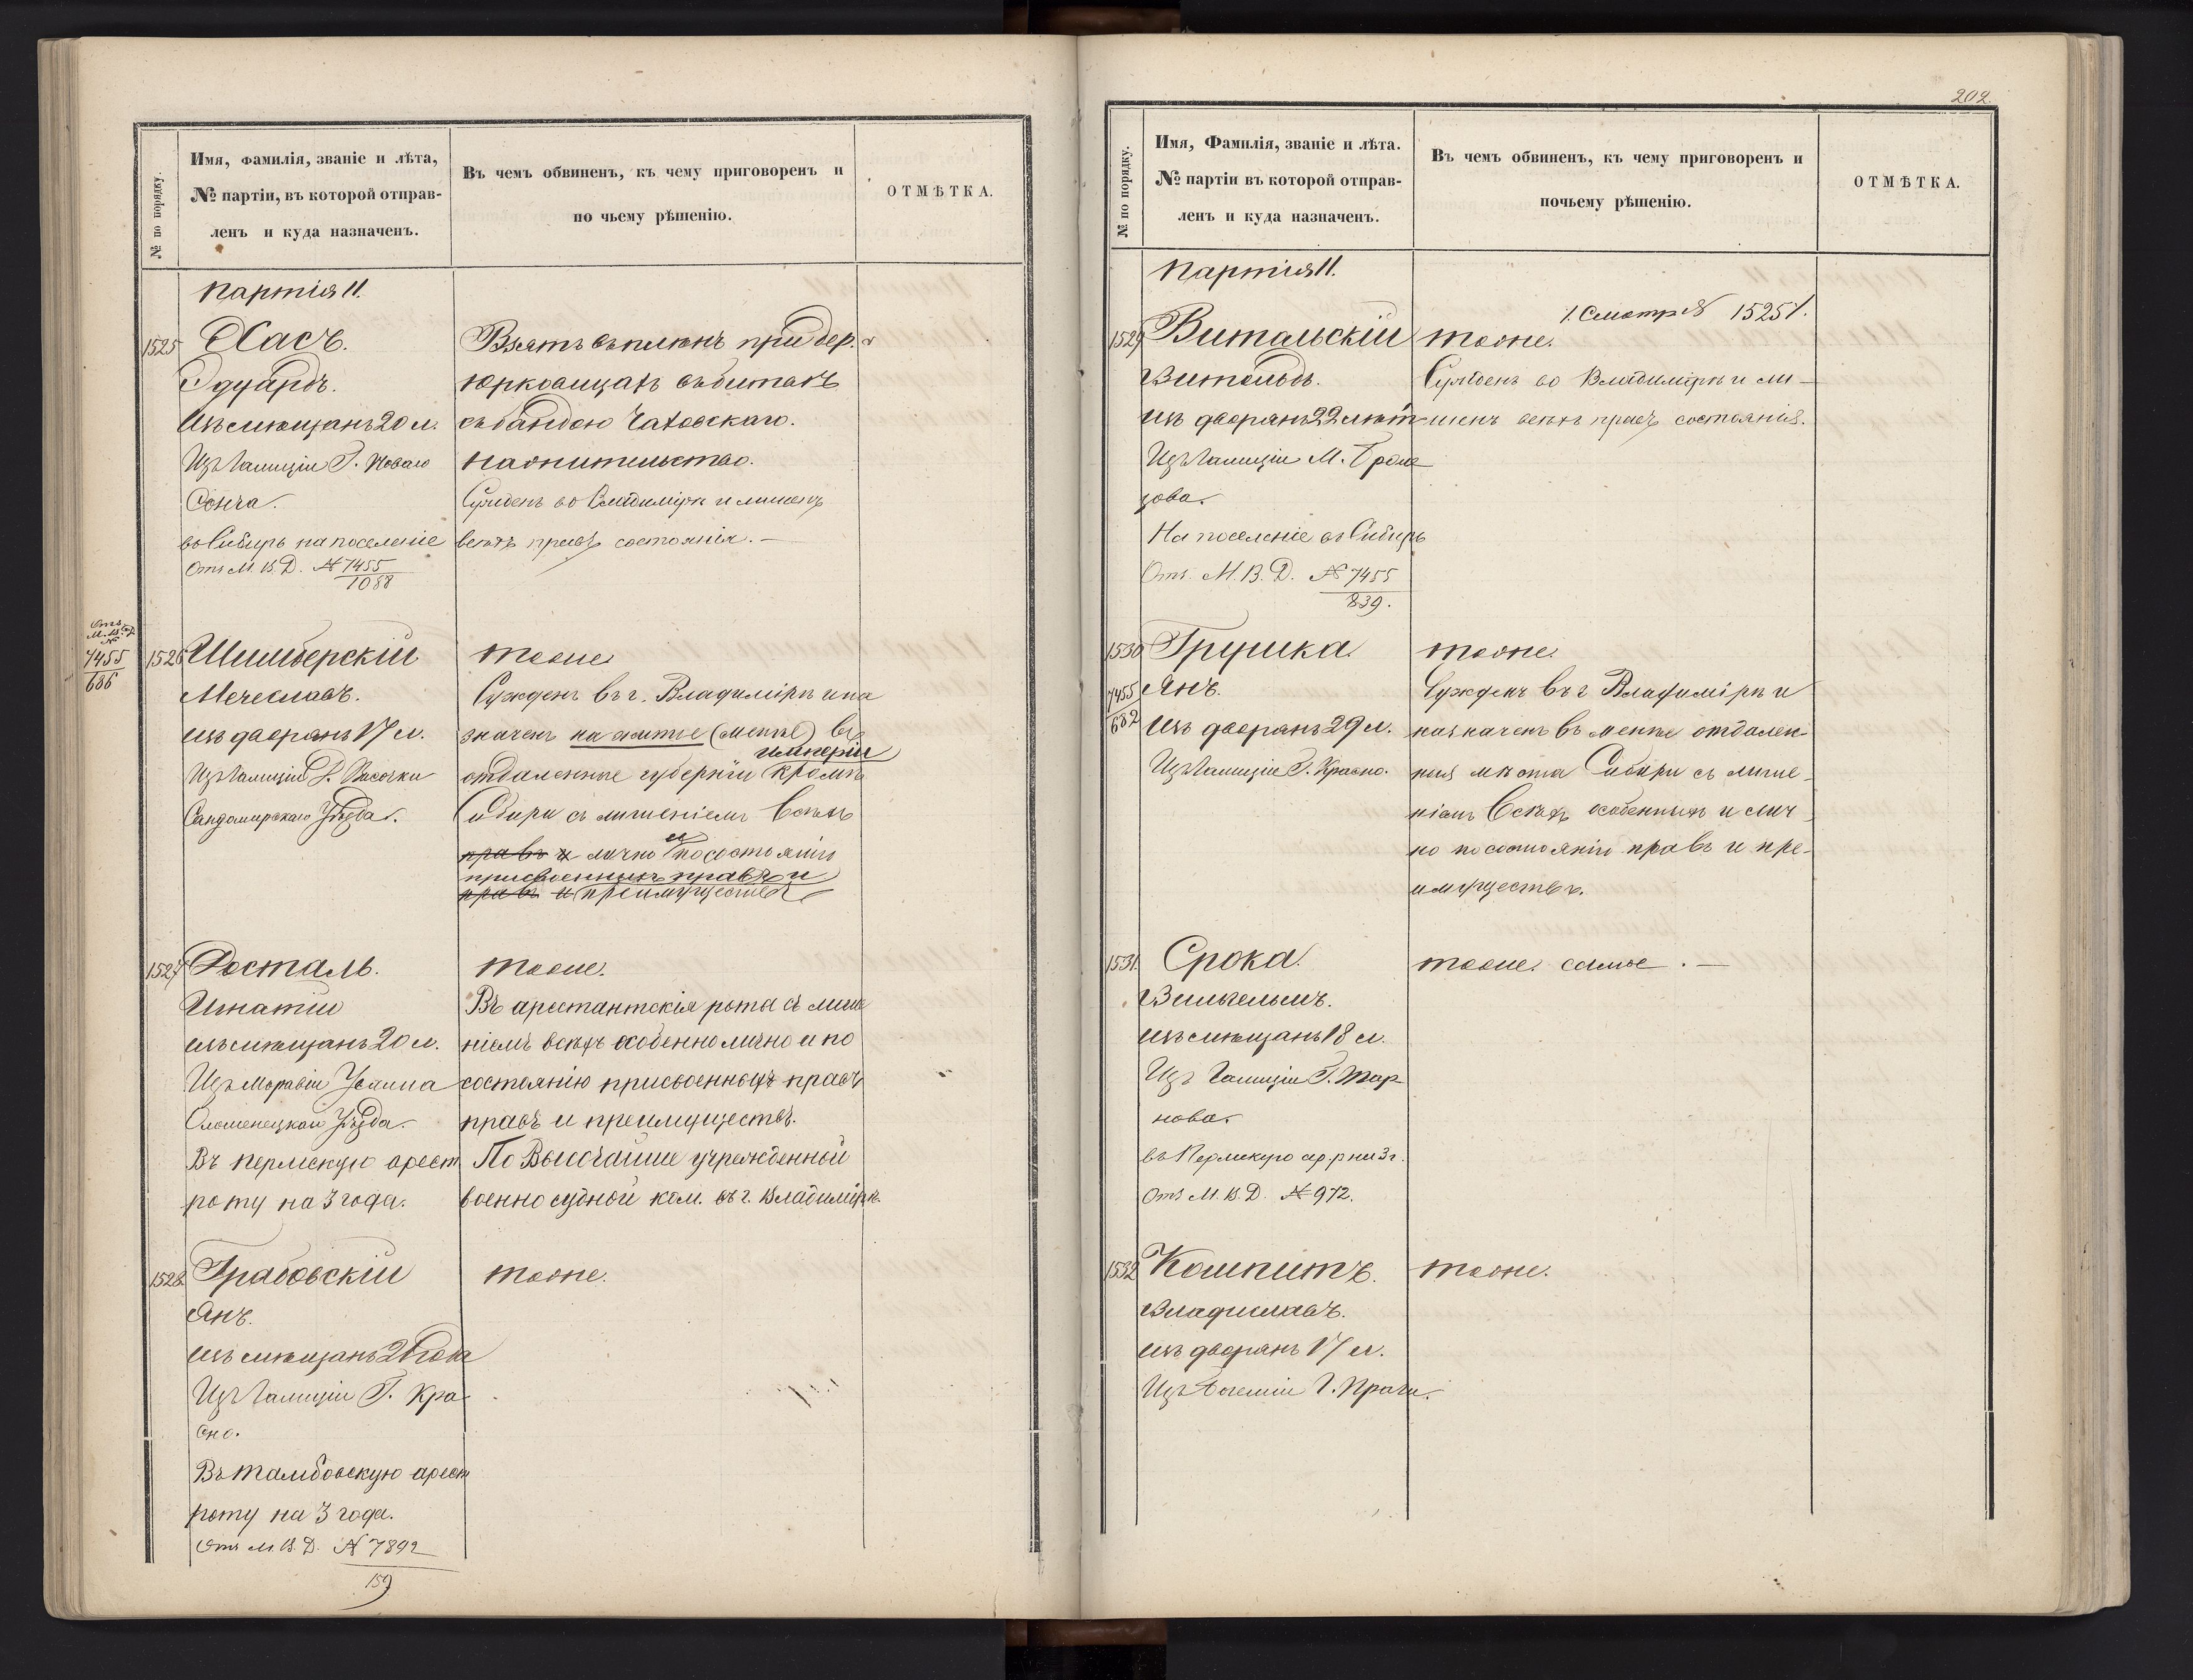 № по порядку.
Имя, Фамилія, званіе и лѣта,
№ партіи, въ которой отправ-
ленъ и куда назначенъ.
Въ чемъ обвиненъ, къ чему приговоренъ и
по чьему рѣшенію.
ОТМѢТКА.
Партія 11.
1525
Хасъ.
Эдуардъ.
Изъ мѣщанъ 20 л.
Изъ Галиціи Г. Новаго
Сонча.
въ Сибирь на поселеніе
Отъ М. В. Д. № 7455
1088
Взятъ въ плѣнъ при дер.
въ битвѣ
съ бандою
на жительство.
Сужденъ во Владимірѣ и лишенъ
всѣхъ правъ состоянія. —
Отъ
М. В. Д.
№
7455
686
1526
Мечеславъ.
изъ дворянъ 17 л.
Изъ Галиціи
Сандомирскаго Уѣзда.
тоже
Сужденъ въ г. Владимірѣ и на
значенъ на житье (менѣе) въ
имперіи
отдаленные губерніи кромѣ
Сибири съ лишеніемъ всѣхъ
правъ и лично и по состоянію
присвоенныхъ правъ и
правъ и преимуществъ
1527
Росталь.
Игнатій
изъ мѣщанъ 20 л.
Изъ Моравіи
Уѣзда.
Въ Пермскую арест
роту на 3 года.
тоже.
Въ арестантскія роты съ лише
ніемъ всѣхъ особенно лично и по
состоянію присвоенныхъ правъ
правъ и преимуществъ.
По Высочайше учрежденной
военно судной ком. въ г. Владимірѣ.
1528
Грабовскій
Янъ.
изъ мѣщанъ 21 года
Изъ Галиціи Г. Кра-
сно.
Въ Тамбовскую арест
роту на 3 года.
Отъ М. В. Д. № 7892
159
тоже.
202.
№ по порядку.
Имя, Фамилія, званіе и лѣта.
№ партіи въ которой отправ-
ленъ и куда назначенъ.
Въ чемъ обвиненъ, къ чему приговоренъ и
почьему рѣшенію.
ОТМѢТКА.
Партія 11.
1529
Витальскій
Витольдъ.
изъ дворянъ 22 лѣт
Изъ Галиціи М.
зова.
На поселеніе въ Сибирь
Отъ М. В. Д. № 7455
839.
/. Смотр № 1525 /.
тоже.
Сужденъ во Владимірѣ и ли-
шенъ всѣхъ правъ состоянія.
1530
7455
682
Грушка
Янъ.
изъ дворянъ 29 л.
Изъ Галиціи Г. Красно.
тоже.
Сужденъ въ г Владимірѣ и
назначенъ въ менѣе отдален-
ныя мѣста Сибири съ лише-
ніемъ всѣхъ особенныхъ и лич-
но по состоянію правъ и пре-
имуществъ.
1531.
Срока.
Вильгельмъ.
изъ мѣщанъ 18 л.
Изъ Галиціи Г. Тар-
нова.
въ Пермскую ар р на 3 г.
Отъ М. В. Д. № 972.
тоже самое. —
1532
Компитъ.
Владиславъ.
изъ дворянъ 17 л.
Изъ Богеміи Г. Праги.
тоже.